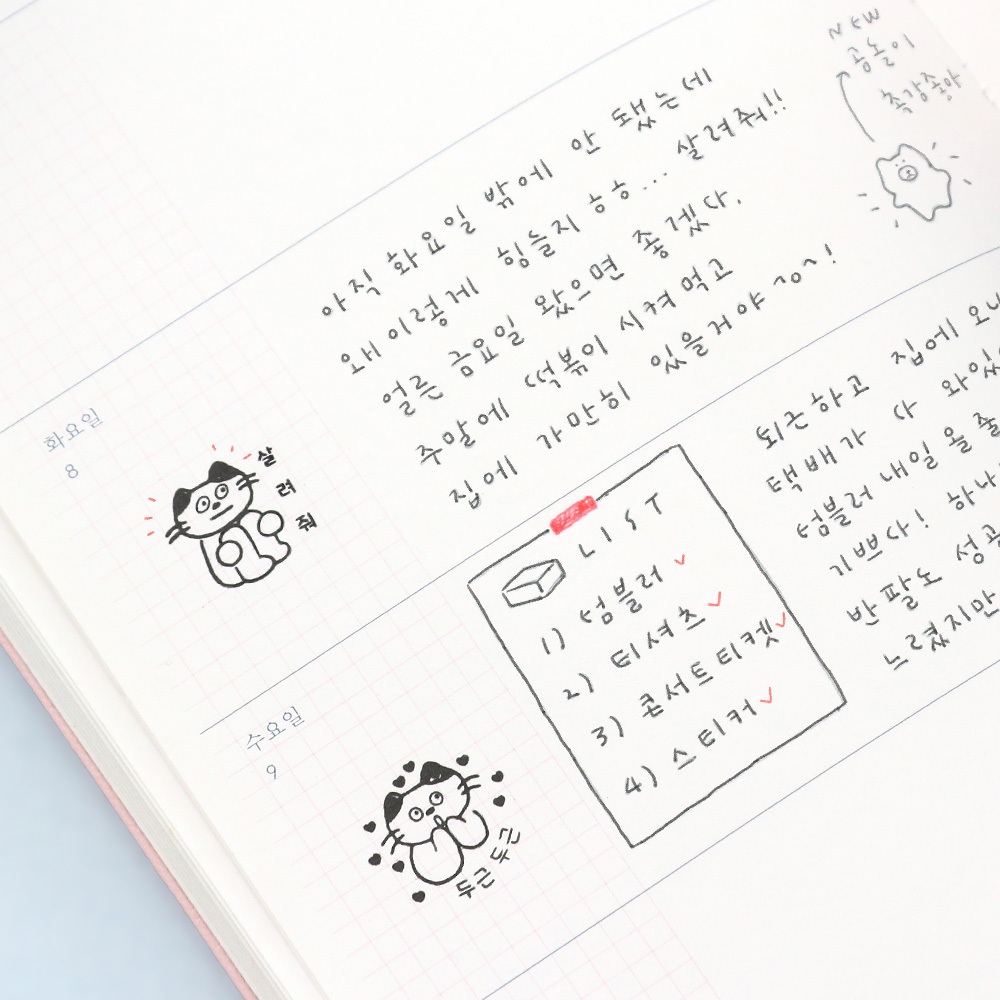 NEW
공놀이
촉감좋아
화요일
8
살
려
줘
아직 화요일 밖에 안 됐는데
왜 이렇게 힘들지 ㅎㅎ... 살려줘!!
얼른 금요일 왔으면 좋겠다.
주말에 떡볶이 시켜먹고
집에 가만히 있을거야 ~o~!
수요일
9
두근두근
LIST
1) 텀블러 ✓
2) 티셔츠 ✓
3) 콘서트티켓 ✓
4) 스티커 ✓
퇴근하고 집에 오니
택배가 다 와있
텀블러 내일 을
기쁘다! 하나
반팔도 성공
느렸지만